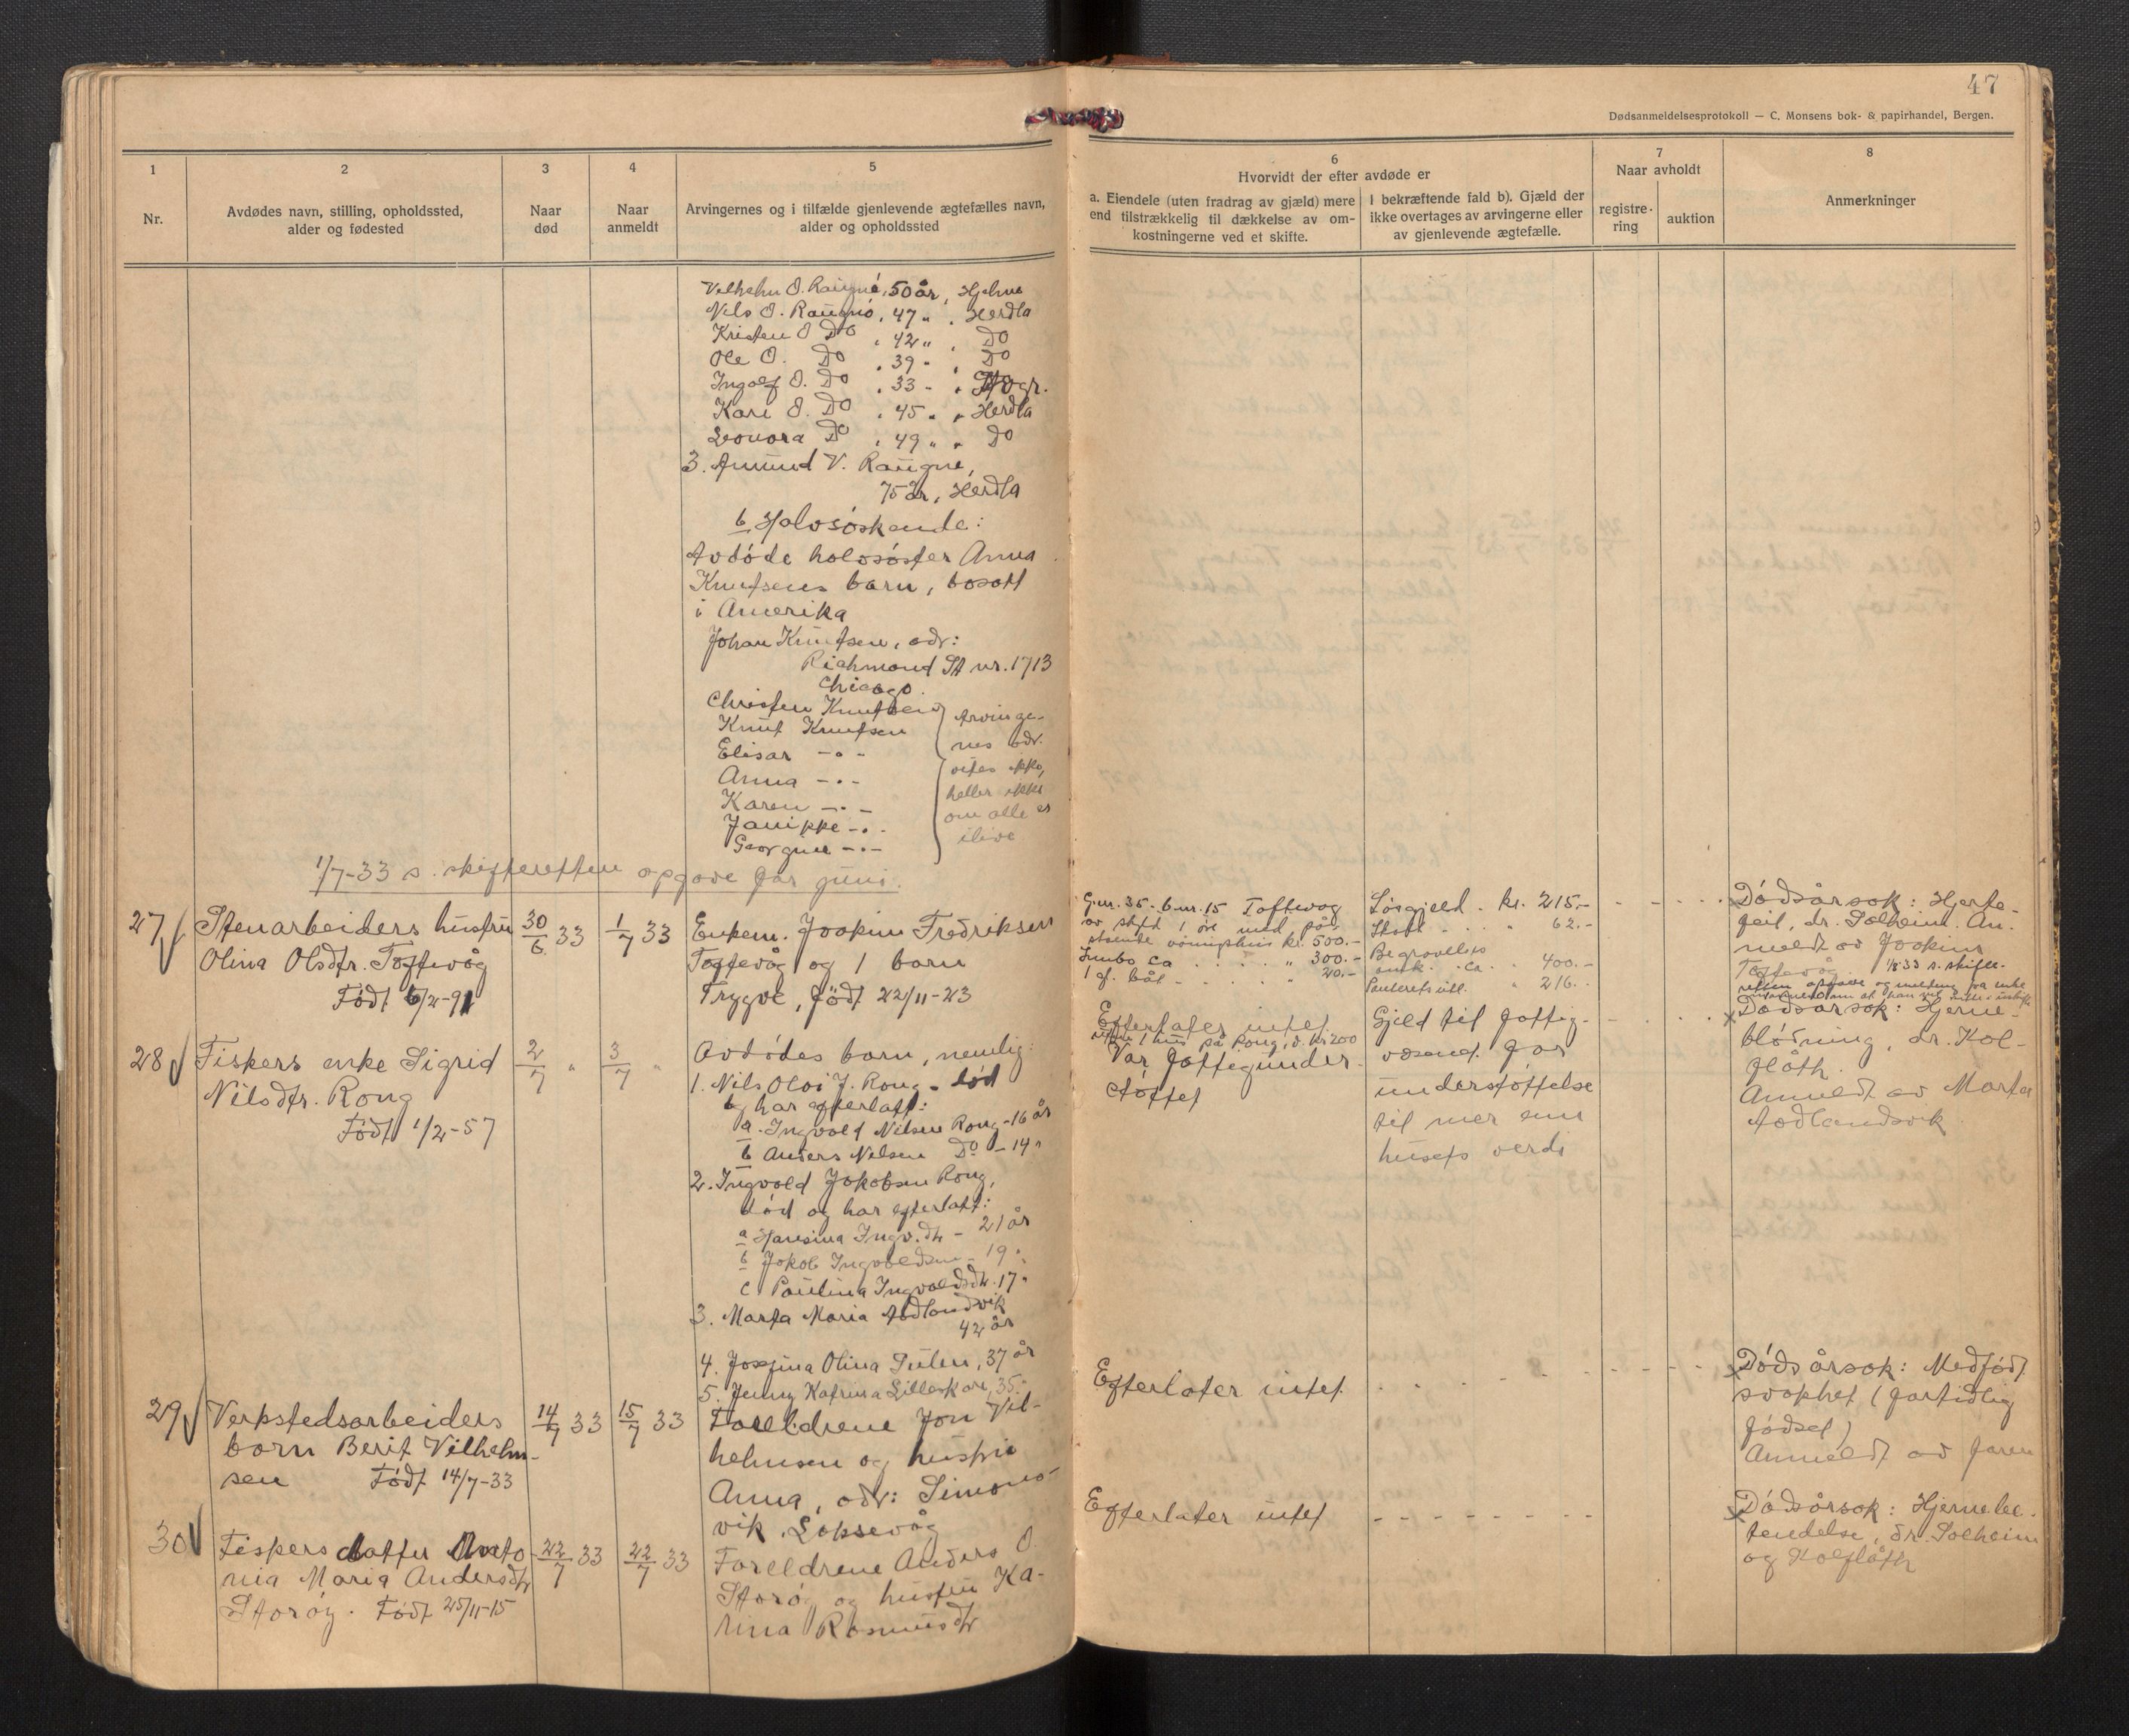 47
Dødsanmeldelsesprotokoll — C. Monsens bok- & papirhandel, Bergen.
1
2
3
4
5
6
7
8
Nr.
Avdødes navn, stilling, opholdssted,
alder og fødested
Naar
død
Naar
anmeldt
Arvingernes og i tilfælde gjenlevende ægtefælles navn,
alder og opholdssted
Hvorvidt der efter avdøde er
a. Eiendele (uten fradrag av gjæld) mere
end tilstrækkelig til dækkelse av om-
kostningerne ved et skifte.
I bekræftende fald b). Gjæld der
ikke overtages av arvingerne eller
av gjenlevende ægtefælle.
Naar avholdt
registre-
ring
auktion
Anmerkninger
O. Raugnø, 50 år, Hjelme
Nils O. Raugnø, 47 " , Herdla
Kristen O Do , 42 " , Do
Ole O. Do , 39 " , Do
Ingolf O. Do , 33 - ,
Kari O. Do , 45 " , Herdla
Leonora Do , 49 " , Do
3. Amund V. Raugnø,
75 år, Herdla
b Halvsøskende:
Avdøde halvsøster Anna
Knutsens barn, bosatt
i Amerika
Johan Knutsen, adr:
Richmond St nr. 1713
Chicago.
Christen Knutsen
Knut Knutsen
Elisar -"-
Anna -"-
Karen -"-
Janikke -"-
Georgine -"-
Arvinge-
nes adr.
vites ikke,
heller ikke
om alle er
ilive
1/7-33 s. skifteretten opgave for juni.
27
Stenarbeiders hustru
Olina Olsdtr. Toftevåg
Født 6/2-91
30/6 33
1/7 33
Enkem. Joakim Fredriksen
Toftevåg og 1 barn
Trygve, født 22/11-23
G.nr. 35 - b.nr. 15 Toftevåg
av skyld 1 øre med på-
stående våningshus kr. 500.-
Innbo ca . . . . " 300.-
1 gl. båt - . . . " 20.-
Løsgjeld . kr. 215.-
Skatt - - . " 62.-
Begravelses
omk. ca. " 400.-
" 216.-
Dødsårsak: Hjerte-
feil, dr. Solheim. An-
meldt av Joakim
Toftevåg. 1/8 33 s. skifte-
28
Fiskers enke Sigrid
Nilsdtr. Rong
Født 1/2-57
2/7 "
3/7 "
Avdødes barn, nemlig:
1. Nils Olai J. Rong - død
og har efterlatt:
a. Ingvald Nilsen Rong - 16 år
b Anders Nilsen Do - 14 "
2. Ingvald Jakobsen Rong,
død og har efterlatt:
a Hansina Ingv.dtr - 21 år
b Jakob Ingvaldsen - 19 "
c Paulina Ingvaldsdtr. 17 "
3. Marta Maria Aadlandsvik
42 år
4. Josefina Olina Sulen, 37 år
5. Jenny Katrina Lilleskare, 35 "
Efterlater intet
uten 1 hus på Rong, v. kr. 200
Var fattigunder-
støttet
Gjeld til fattig-
vesenet for
understøttelse
til mer enn
husets verdi
Dødsårsak: Hjerne-
blødning, dr. Kol-
flåth.
Anmeldt av Marta
Aadlandsvik.
29
Verkstedsarbeiders
barn Berit Vilhelm-
sen Født 14/7-33
14/7 33
15/7 33
Foreldrene Jon Vil-
helmsen og hustru
Anna, adr: Simons-
vik, Laksevåg
Efterlater intet.
Dødsårsak: Medfødt
svakhet (fortidlig
fødsel)
Anmeldt av faren
30
Fiskers datter Anto-
nia Maria Andersdtr
Storøy. Født 25/11-15
22/7 33
22/7 33
Foreldrene Anders O.
Storøy og hustru Ka-
trina Rasmusdtr
Efterlater intet
Dødsårsak: Hjernebe-
tendelse, dr. Solheim
og Kolflåth